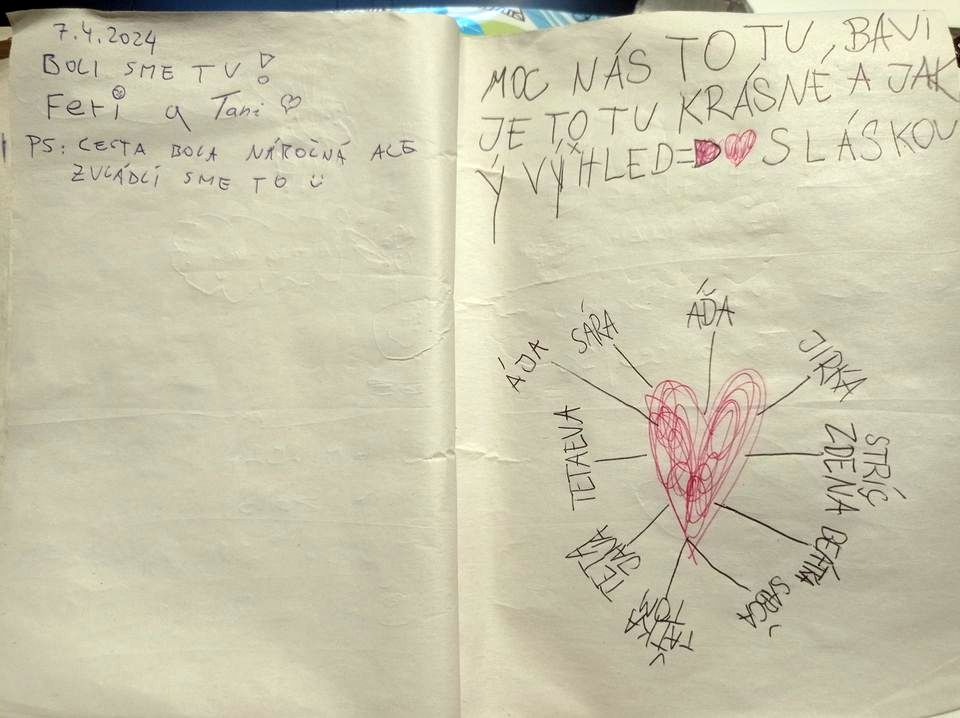 7.4.2024
BOLI SME TU!
Feri a Tani ♡
PS: CESTA BOLA NÁROČNÁ ALE
ZVLÁDLI SME TO
MOC NÁS TO TU BAVI
JE TO TU KRÁSNÉ A JAK
Ý VÝHLED= SLÁSKOU
AĎA
SÁRA
JIRKA
ÁJA
STRÝC
ZDENA
TETAEVA
BEÁTA
TETA
SABČA
TAŤKA
TOM